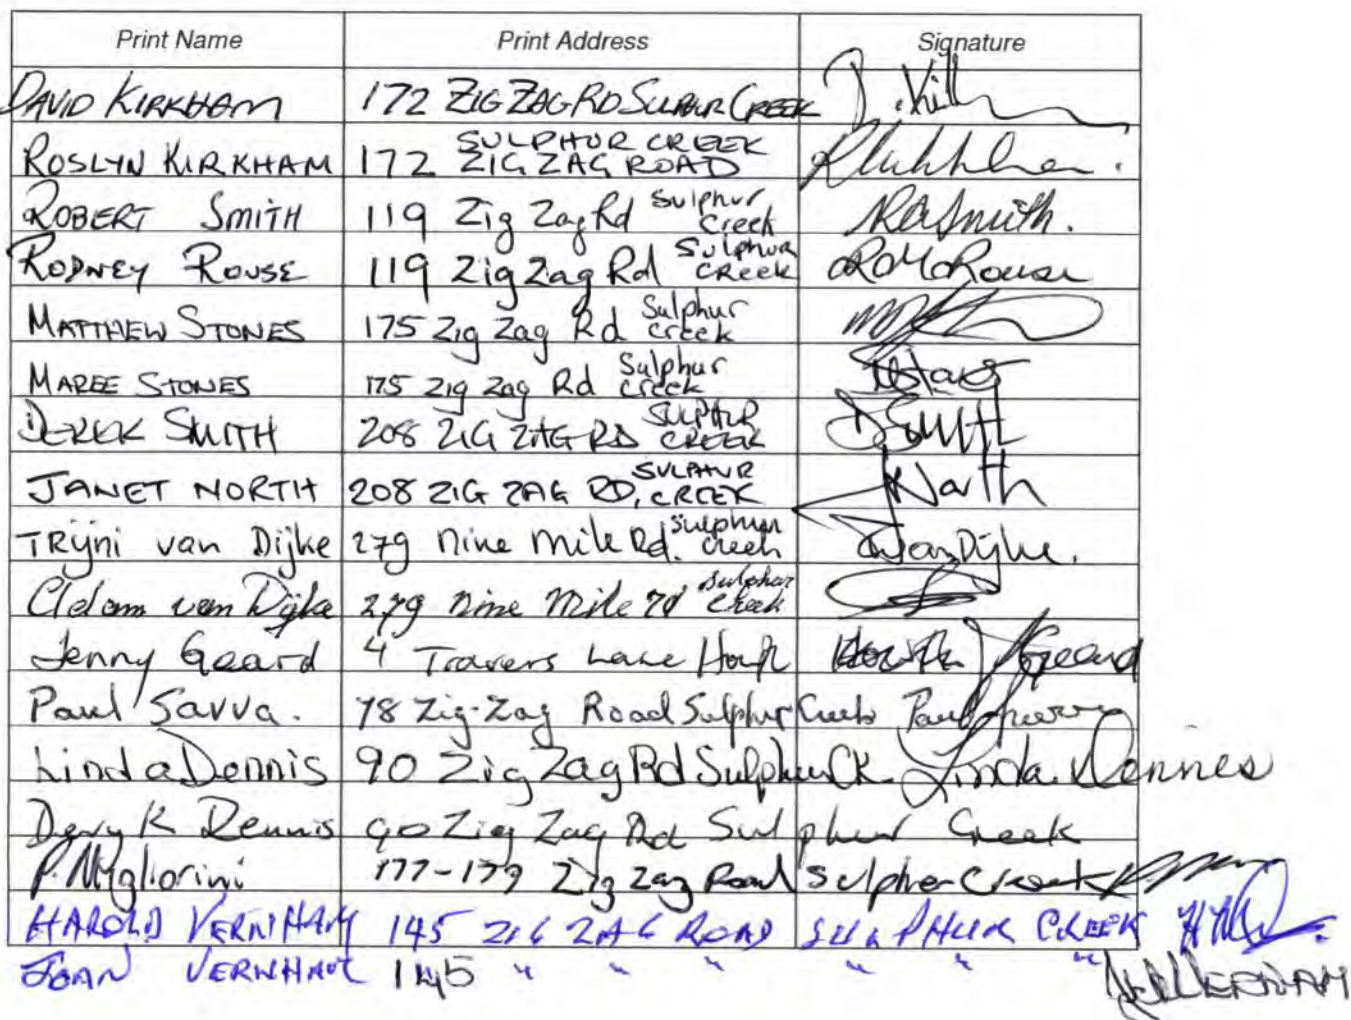 Print Name Print Address Signature
DAVID KIRKHAM 172 ZIG ZAG RD SULPHUR CREEK
ROSLYN KIRKHAM 172 SULPHUR CREEK ZIG ZAG ROAD
ROBERT SMITH 119 Zig Zag Rd Sulphur Creek RASmith.
RODNEY ROUSE 119 Zig Zag Rd Sulphur Creek Rouse
MATTHEW STONES 175 Zig Zag Rd Sulphur Creek
MAREE STONES 175 Zig Zag Rd Sulphur Creek
DEREK SMITH 208 ZIG ZAG RD SULPHUR CREEK DSmith
JANET NORTH 208 ZIG ZAG RD, SULPHUR CREEK North
TRijni van Dijke 279 Nine Mile Rd. Sulphur Creek van Dijke.
Adam van Dijke 279 Nine Mile rd Sulphur Creek
Jenny Geard 4 Travers Lane Geard
Paul Savva. 78 Zig-Zag Road Sulphur Creek Paul Savva
Linda Dennis 90 Zig Zag Rd Sulphur Ck. Linda Dennes
Deryk Dennis 90 Zig Zag Rd Sulphur Creek
P. Migliorini 177-179 Zig Zag Road Sulpher Creek
HAROLD VERNHAM 145 ZIG ZAG ROAD SULPHUR CREEK
JOAN VERNHAM 145 " " " " " " VERNHAM